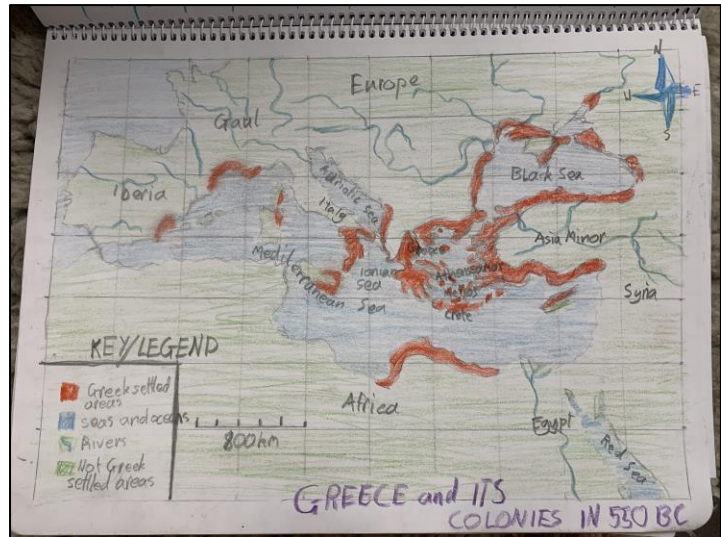 N
W
E
S
Europe
Gaul
Iberia
Adriatic sea
Italy
Black Sea
Asia Minor
Greece
Athens
Ionian
sea
Melos
Crete
Mediterranean Sea
Syria
Africa
Egypt
Red Sea
KEY/LEGEND
Greek settled
areas
seas and oceans
Rivers
Not Greek
settled areas
800km
GREECE and ITS
COLONIES IN 550 BC